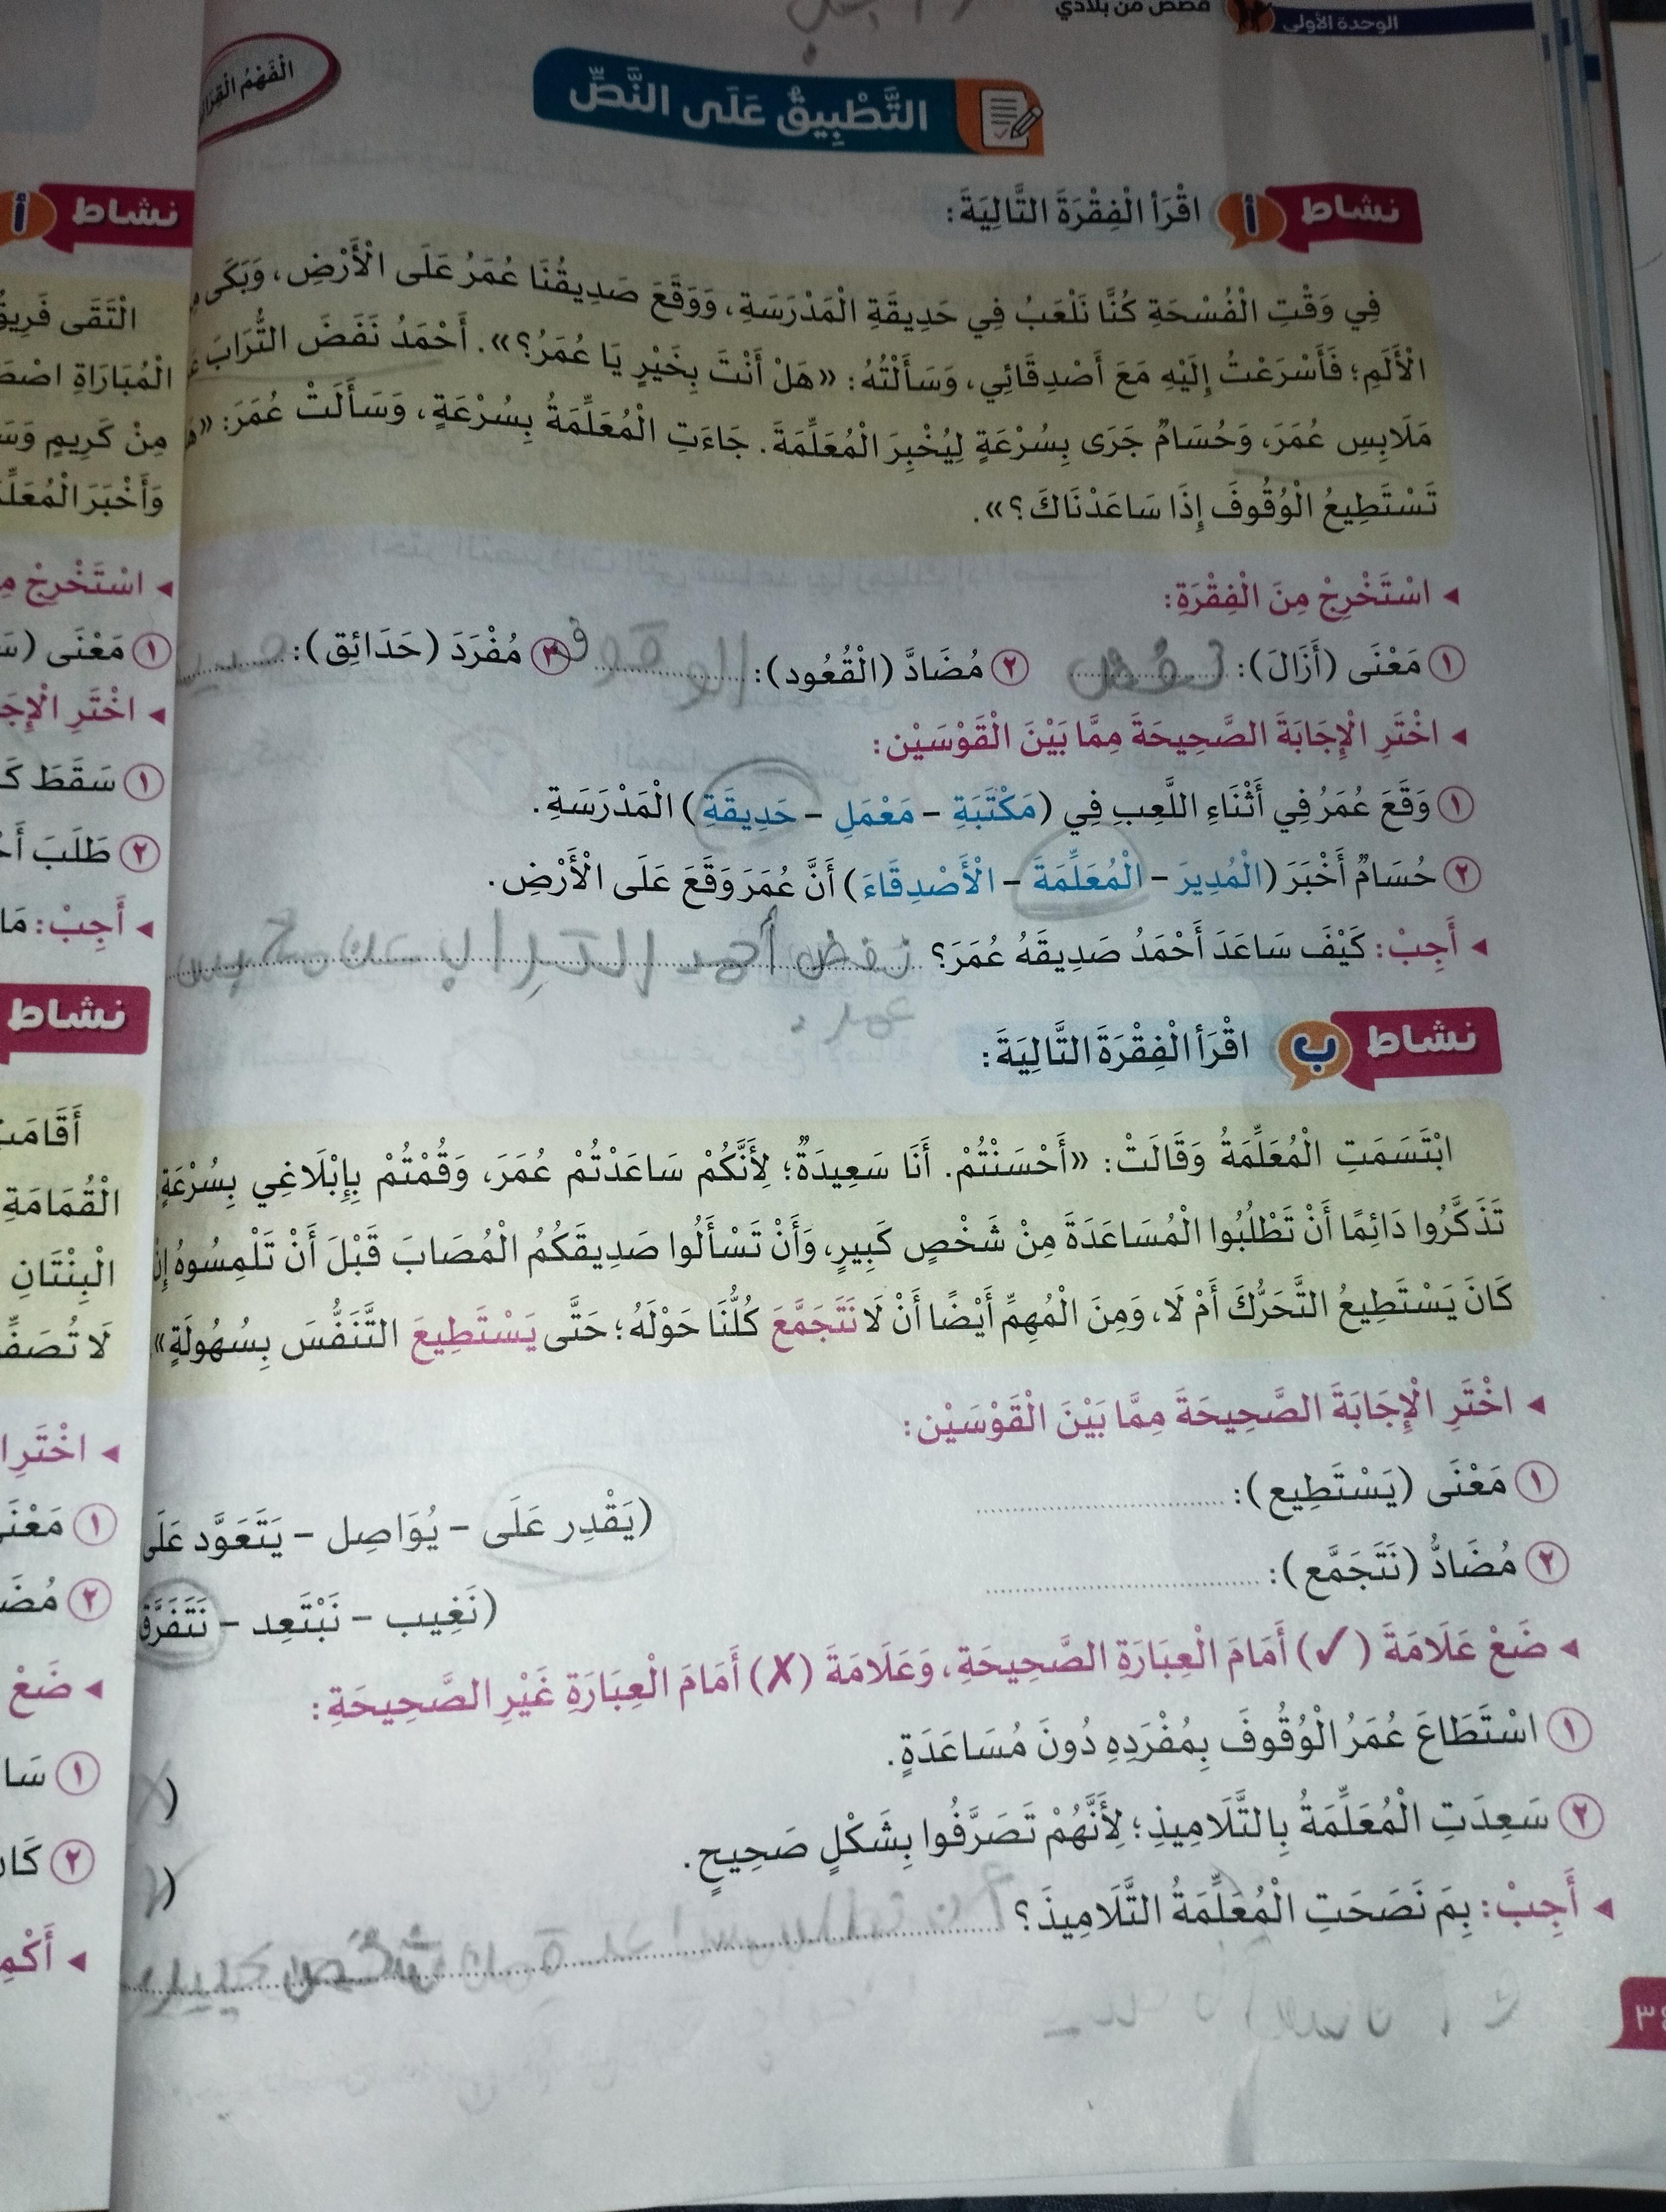 الوحدة الأولى
قصص من بلادي
التَّطْبِيقُ عَلَى النَّصِّ
الْفَهْمُ
نشاط أ اقْرَأ الْفِقْرَةَ التَّالِيَةَ:
فِي وَقْتِ الْفُسْحَةِ كُنَّا نَلْعَبُ فِي حَدِيقَةِ الْمَدْرَسَةِ، وَوَقَعَ صَدِيقُنَا عُمَرُ عَلَى الْأَرْضِ، وَبَكَى
الْأَلَمِ؛ فَأَسْرَعْتُ إِلَيْهِ مَعَ أَصْدِقَائِي، وَسَأَلْتُهُ: «هَلْ أَنْتَ بِخَيْرٍ يَا عُمَرُ؟». أَحْمَدُ نَفَضَ التُّرَابَ
مَلَابِسِ عُمَرَ، وَحُسَامٌ جَرَى بِسُرْعَةٍ لِيُخْبِرَ الْمُعَلِّمَةَ. جَاءَتِ الْمُعَلِّمَةُ بِسُرْعَةٍ، وَسَأَلَتْ عُمَرَ: «
تَسْتَطِيعُ الْوُقُوفَ إِذَا سَاعَدْنَاكَ؟».
◂ اسْتَخْرِجْ مِنَ الْفِقْرَةِ:
١ مَعْنَى (أَزَالَ): نفض ٢ مُضَادَّ (الْقُعُود): الوقوف ٣ مُفْرَدَ (حَدَائِق):
◂ اخْتَرِ الْإِجَابَةَ الصَّحِيحَةَ مِمَّا بَيْنَ الْقَوْسَيْن:
١ وَقَعَ عُمَرُ فِي أَثْنَاءِ اللَّعِبِ فِي (مَكْتَبَةِ – مَعْمَلِ – حَدِيقَةِ) الْمَدْرَسَةِ.
٢ حُسَامٌ أَخْبَرَ (الْمُدِيرَ – الْمُعَلِّمَةَ – الْأَصْدِقَاءَ) أَنَّ عُمَرَ وَقَعَ عَلَى الْأَرْضِ.
◂ أَجِبْ: كَيْفَ سَاعَدَ أَحْمَدُ صَدِيقَهُ عُمَرَ؟ نفض أحمد
عمر.
نشاط ب اقْرَأ الْفِقْرَةَ التَّالِيَةَ:
ابْتَسَمَتِ الْمُعَلِّمَةُ وَقَالَتْ: «أَحْسَنْتُمْ. أَنَا سَعِيدَةٌ؛ لِأَنَّكُمْ سَاعَدْتُمْ عُمَرَ، وَقُمْتُمْ بِإِبْلَاغِي بِسُرْعَةٍ
تَذَكَّرُوا دَائِمًا أَنْ تَطْلُبُوا الْمُسَاعَدَةَ مِنْ شَخْصٍ كَبِيرٍ، وَأَنْ تَسْأَلُوا صَدِيقَكُمُ الْمُصَابَ قَبْلَ أَنْ تَلْمِسُوهُ إِنْ
كَانَ يَسْتَطِيعُ التَّحَرُّكَ أَمْ لَا، وَمِنَ الْمُهِمِّ أَيْضًا أَنْ لَا نَتَجَمَّعَ كُلُّنَا حَوْلَهُ؛ حَتَّى يَسْتَطِيعَ التَّنَفُّسَ بِسُهُولَةٍ».
◂ اخْتَرِ الْإِجَابَةَ الصَّحِيحَةَ مِمَّا بَيْنَ الْقَوْسَيْن:
١ مَعْنَى (يَسْتَطِيع): (يَقْدِر عَلَى – يُوَاصِل – يَتَعَوَّد عَلَى
٢ مُضَادُّ (نَتَجَمَّع): (نَغِيب – نَبْتَعِد – نَتَفَرَّق
◂ ضَعْ عَلَامَةَ (✓) أَمَامَ الْعِبَارَةِ الصَّحِيحَةِ، وَعَلَامَةَ (✗) أَمَامَ الْعِبَارَةِ غَيْرِ الصَّحِيحَةِ:
١ اسْتَطَاعَ عُمَرُ الْوُقُوفَ بِمُفْرَدِهِ دُونَ مُسَاعَدَةٍ. (
٢ سَعِدَتِ الْمُعَلِّمَةُ بِالتَّلَامِيذِ؛ لِأَنَّهُمْ تَصَرَّفُوا بِشَكْلٍ صَحِيحٍ. (
◂ أَجِبْ: بِمَ نَصَحَتِ الْمُعَلِّمَةُ التَّلَامِيذَ؟
٣٤
نشاط أ
الْتَقَى
الْمُبَارَاةِ
مِنْ كَرِيمٍ
وَأَخْبَرَ
◂ اسْتَخْرِجْ
١ مَعْنَى
◂ اخْتَرِ
١ سَقَطَ
٢ طَلَبَ
◂ أَجِبْ: مَا
نشاط
الْقُمَامَةِ
الْبِنْتَانِ
لَا
◂ اخْتَرِ
١
٢
◂ ضَعْ
١
٢
◂